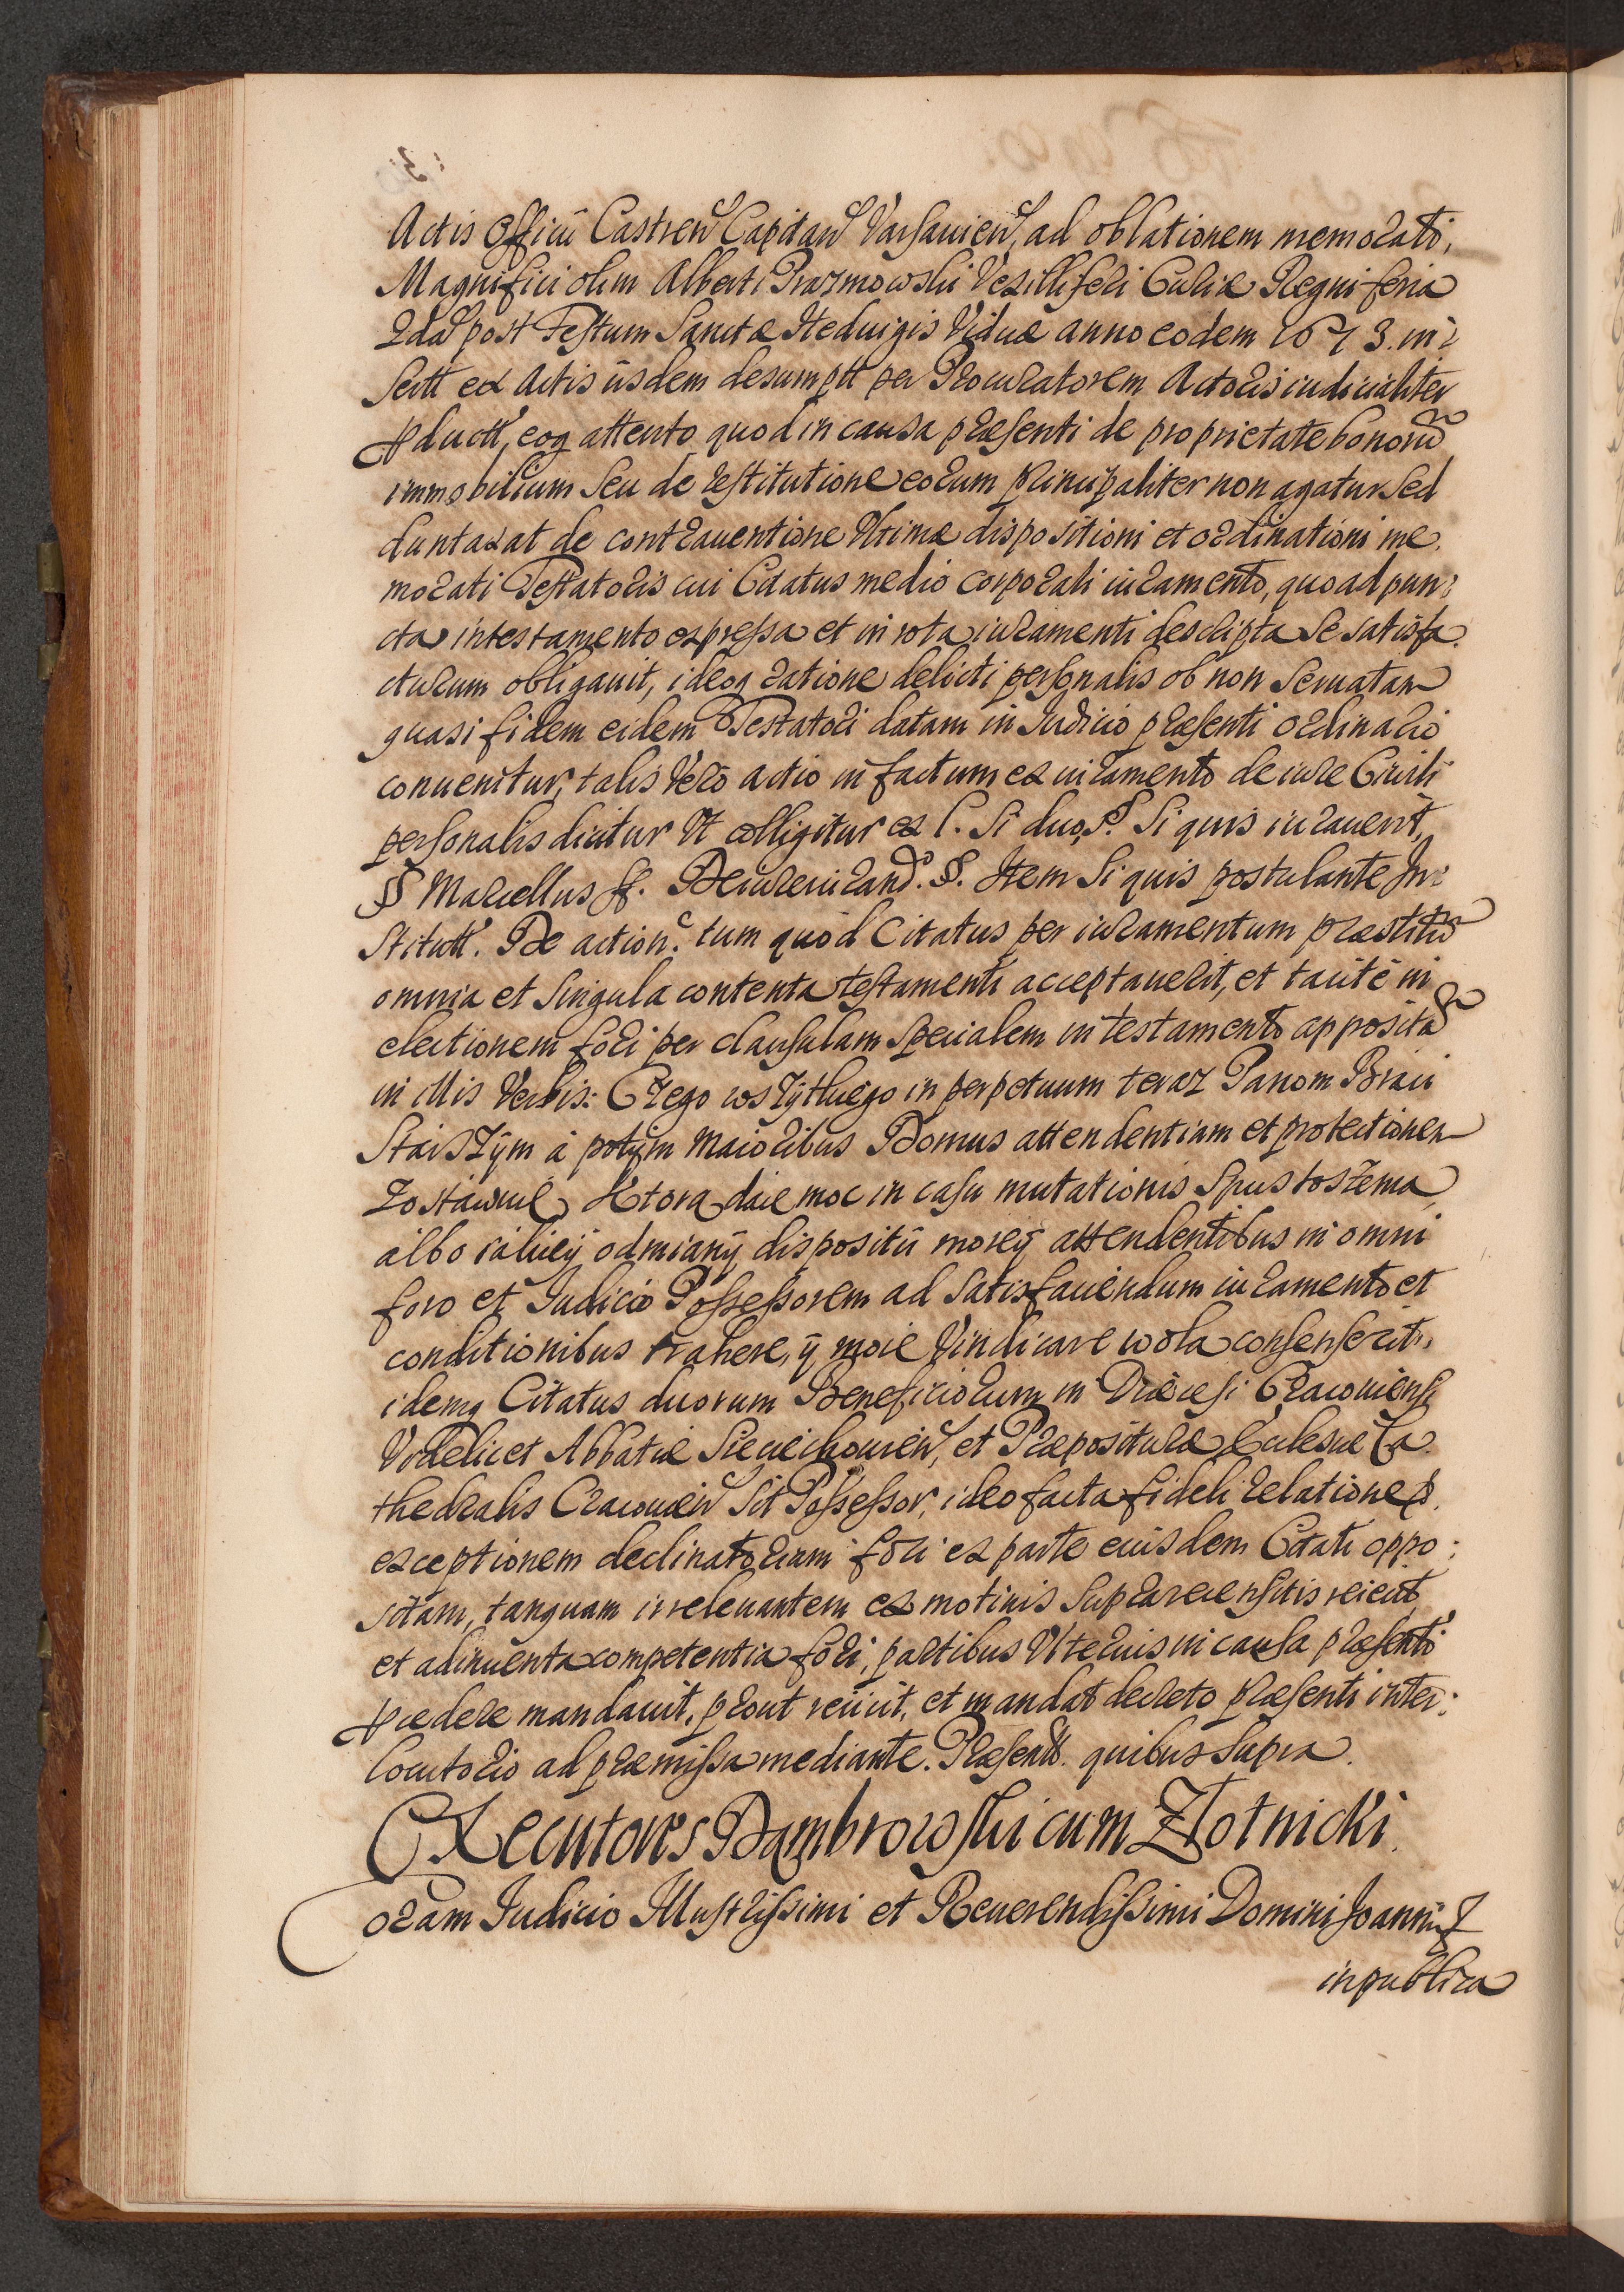 Actis Officii Castren Capitan Varsauien, ad oblationem memorati,
Magnifici olim Alberti Prazmowski Vexilliferi Curiæ Regni feria
2da post Festum Sanctæ Heduigis Viduæ anno eodem 1673. in:
sertt ex Actis iisdem desumptt per Procuratorem Actoris iudicialiter
pductt, eoq attento quod in causa præsenti de proprietate bonorū
immobilium seu de restitutione eorum principaliter non agatur sed
duntaxat de contrauentione Vltimæ dispositioni et ordinationi me.
morati Testatoris cui Citatus medio corporali iuramento, quo ad pun:
cta in testamento expressa et in rota iuramenti descripta se satisfa.
cturum obligauit, ideoq ratione delicti personalis ob non seruatam
quasi fidem eidem Testatori datam in Iudicio præsenti ordinario
conuenitur, talis Vero actio in factum ex iuramento de iure Ciuili
personalis dicitur Vt colligitur ex l. Si duo, §. Si quis iurauerit,
§ Marcellus ff. De iureiurand. §. Item Si quis postulante In:
stitutt. De action. tum quod Citatus per iuramentum præstitū
omnia et singula contenta testamenti acceptauerit, et tacitè in
electionem fori per clausulam specialem in testamento apposita
in illis Verbis: Czego wszytkiego in perpetuum teraz Panom Braci
Starszym a potym maioribus Domus attendentiam et protectionem
zostawuię Ktora daie moc in casu mutationis spustoszenia,
albo iakiey odmiany dispositii moiey attendentibus in omni
foro et Iudicio Possessorem ad satisfaciendum iuramento et
conditionibus trahere, y moie Vindicare wola consenserit,
idemq Citatus duorum Beneficiorum in Diæcesi Cracouiensi
Videlicet Abbatiæ Sieciechouien, et Præposituræ Ecclesiæ Ca.
thedralis Cracouien sit Possessor, ideo facta fideli relatione p.
exceptionem declinatoriam fori ex parte eiusdem Citati oppo:
sitam, tanquam irreleuantem ex motiuis suprarecensitis reiecit
et adinuenta competentia fori, partibus Vlterius in causa præsenti
pcedere mandauit, prout reiicit, et mandat decreto præsenti inter:
locutorio ad præmissa mediante. Præsentt. quibus supra.
Executores Dąmbrowski cum Złotnicki.
Coram Iudicio Illustrissimi et Reuerendissimi Domini Joannis
in publica